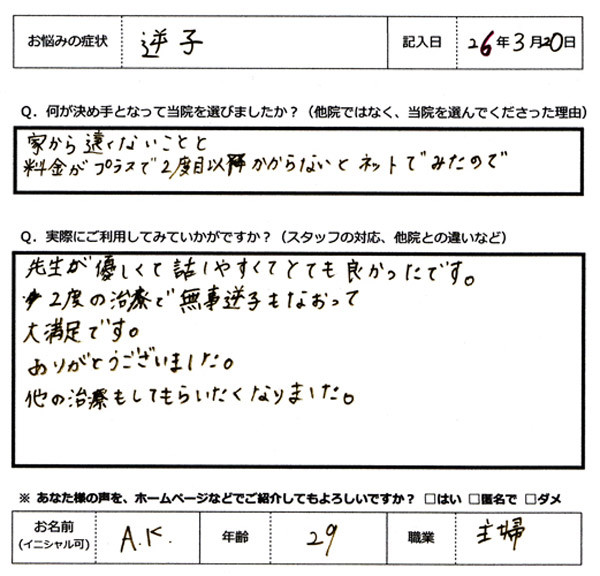 お悩みの症状 逆子 記入日 26年3月20日
Q. 何が決め手となって当院を選びましたか？（他院ではなく、当院を選んでくださった理由）
家から遠くないことと
料金がプラスで2度目以降かからないとネットでみたので
Q. 実際にご利用してみていかがですか？（スタッフの対応、他院との違いなど）
先生が優しくて話しやすくてとても良かったです。
2度の治療で無事逆子もなおって
大満足です。
ありがとうございました。
他の治療もしてもらいたくなりました。
※ あなた様の声を、ホームページなどでご紹介してもよろしいですか？ □はい □匿名で □ダメ
お名前 A.K. 年齢 29 職業 主婦
(イニシャル可)